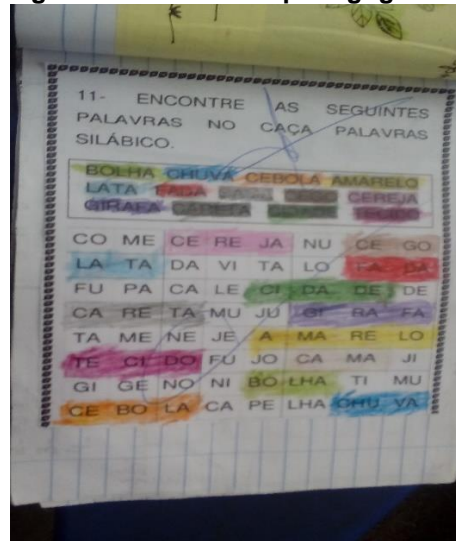 11- ENCONTRE AS SEGUINTES
PALAVRAS NO CAÇA PALAVRAS
SILÁBICO.
BOLHA CHUVA CEBOLA AMARELO
LATA FADA CEREJA
GIRAFA CARETA CIDADE TECIDO
CO ME CE RE JA NU CE GO
LA TA DA VI TA LO FA DA
FU PA CA LE CI DA DE DE
CA RE TA MU JU GI RA FA
TA ME NE JE A MA RE LO
TE CI DO FU JO CA MA JI
GI GE NO NI BO LHA TI MU
CE BO LA CA PE LHA CHU VA